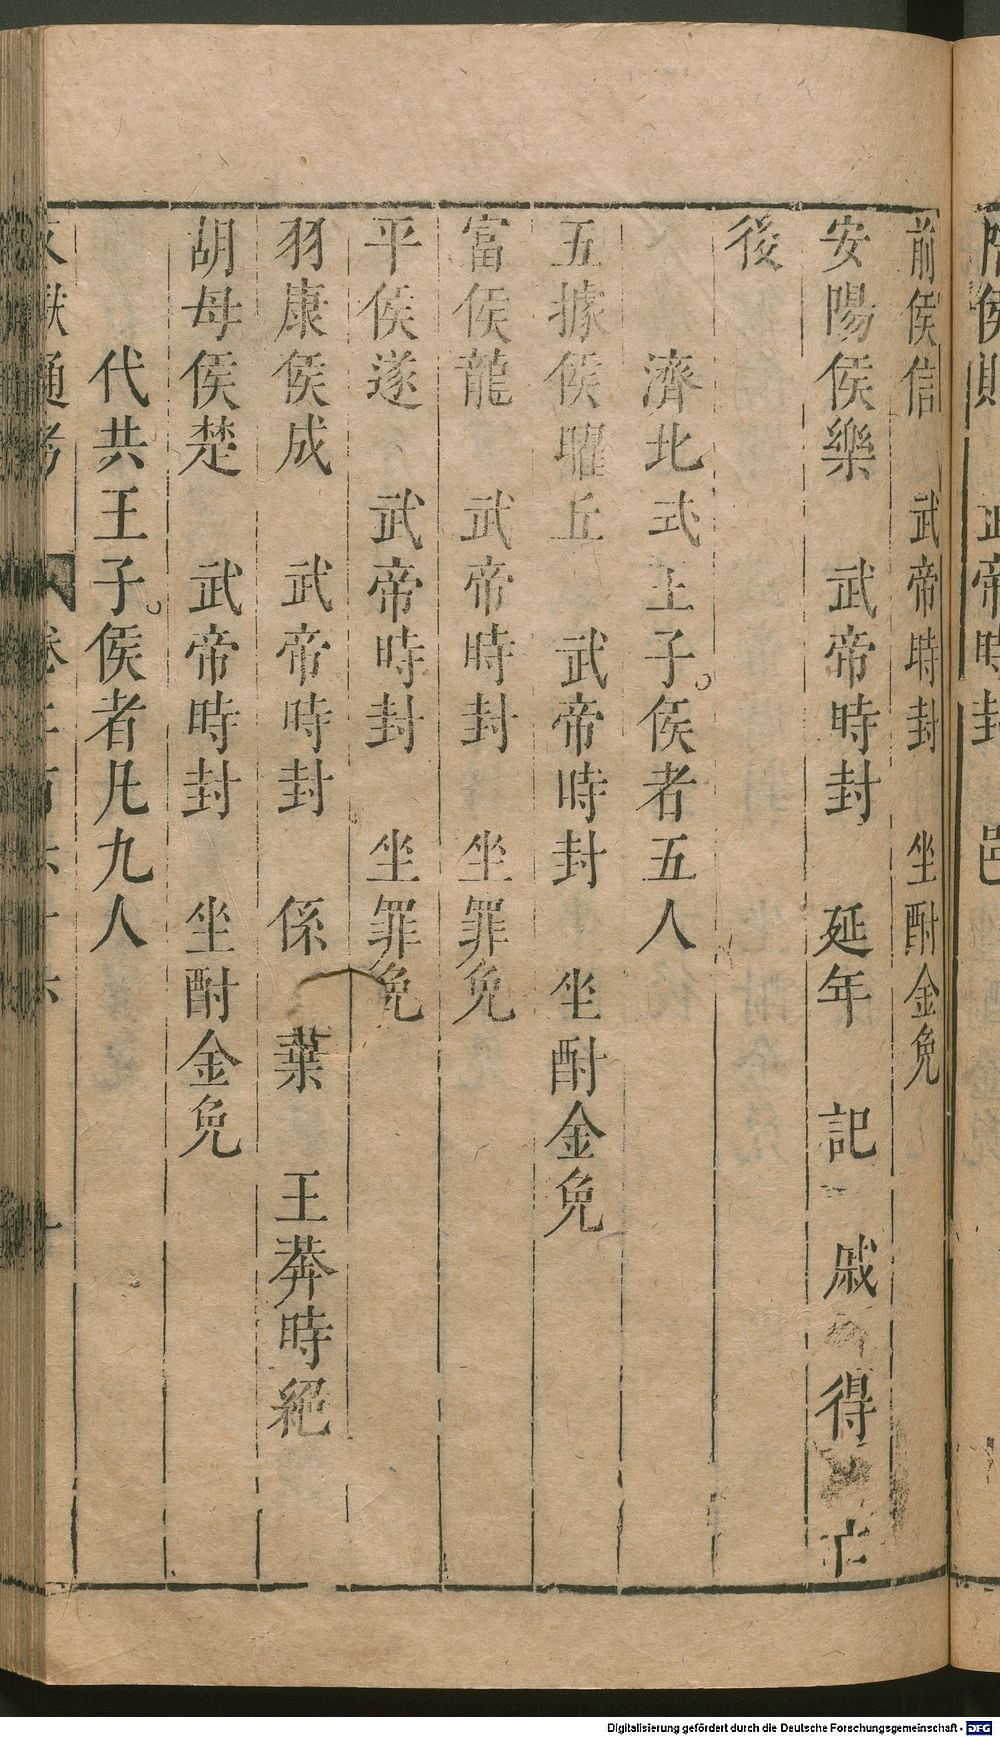 侯 武帝時封 邑
前侯信 武帝時封 坐酎金免
安陽侯樂 武帝時封 延年 記 戚 得 亡
後
濟北式王子侯者五人
五據侯曜丘 武帝時封 坐酎金免
富侯龍 武帝時封 坐罪免
平侯遂 武帝時封 坐罪免
羽康侯成 武帝時封 係 葉 王莽時絕
胡母侯楚 武帝時封 坐酎金免
代共王子侯者凡九人
通考 卷
Digitalisierung gefördert durch die Deutsche Forschungsgemeinschaft - DFG